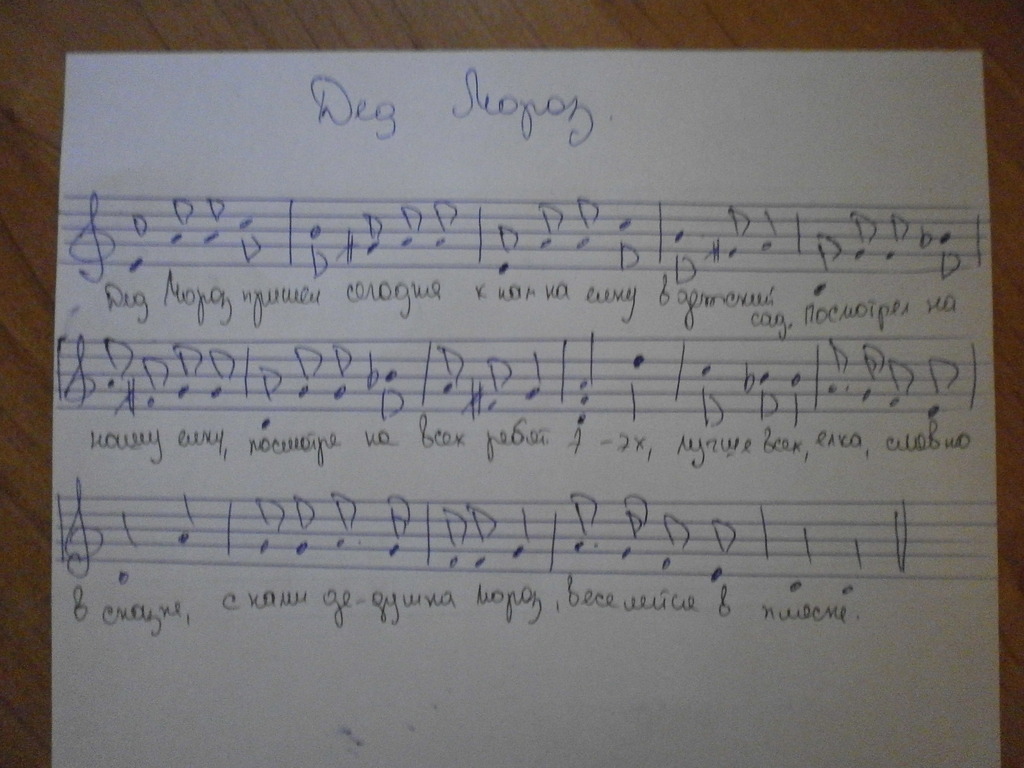 Дед Мороз.
Дед Мороз пришёл сегодня к нам на елку в детский
сад, посмотрел на
нашу елку, посмотре на всех ребят Э -эх, лучше всех, елка, словно
в сказке, с нами де-душка мороз, веселится в пляске.